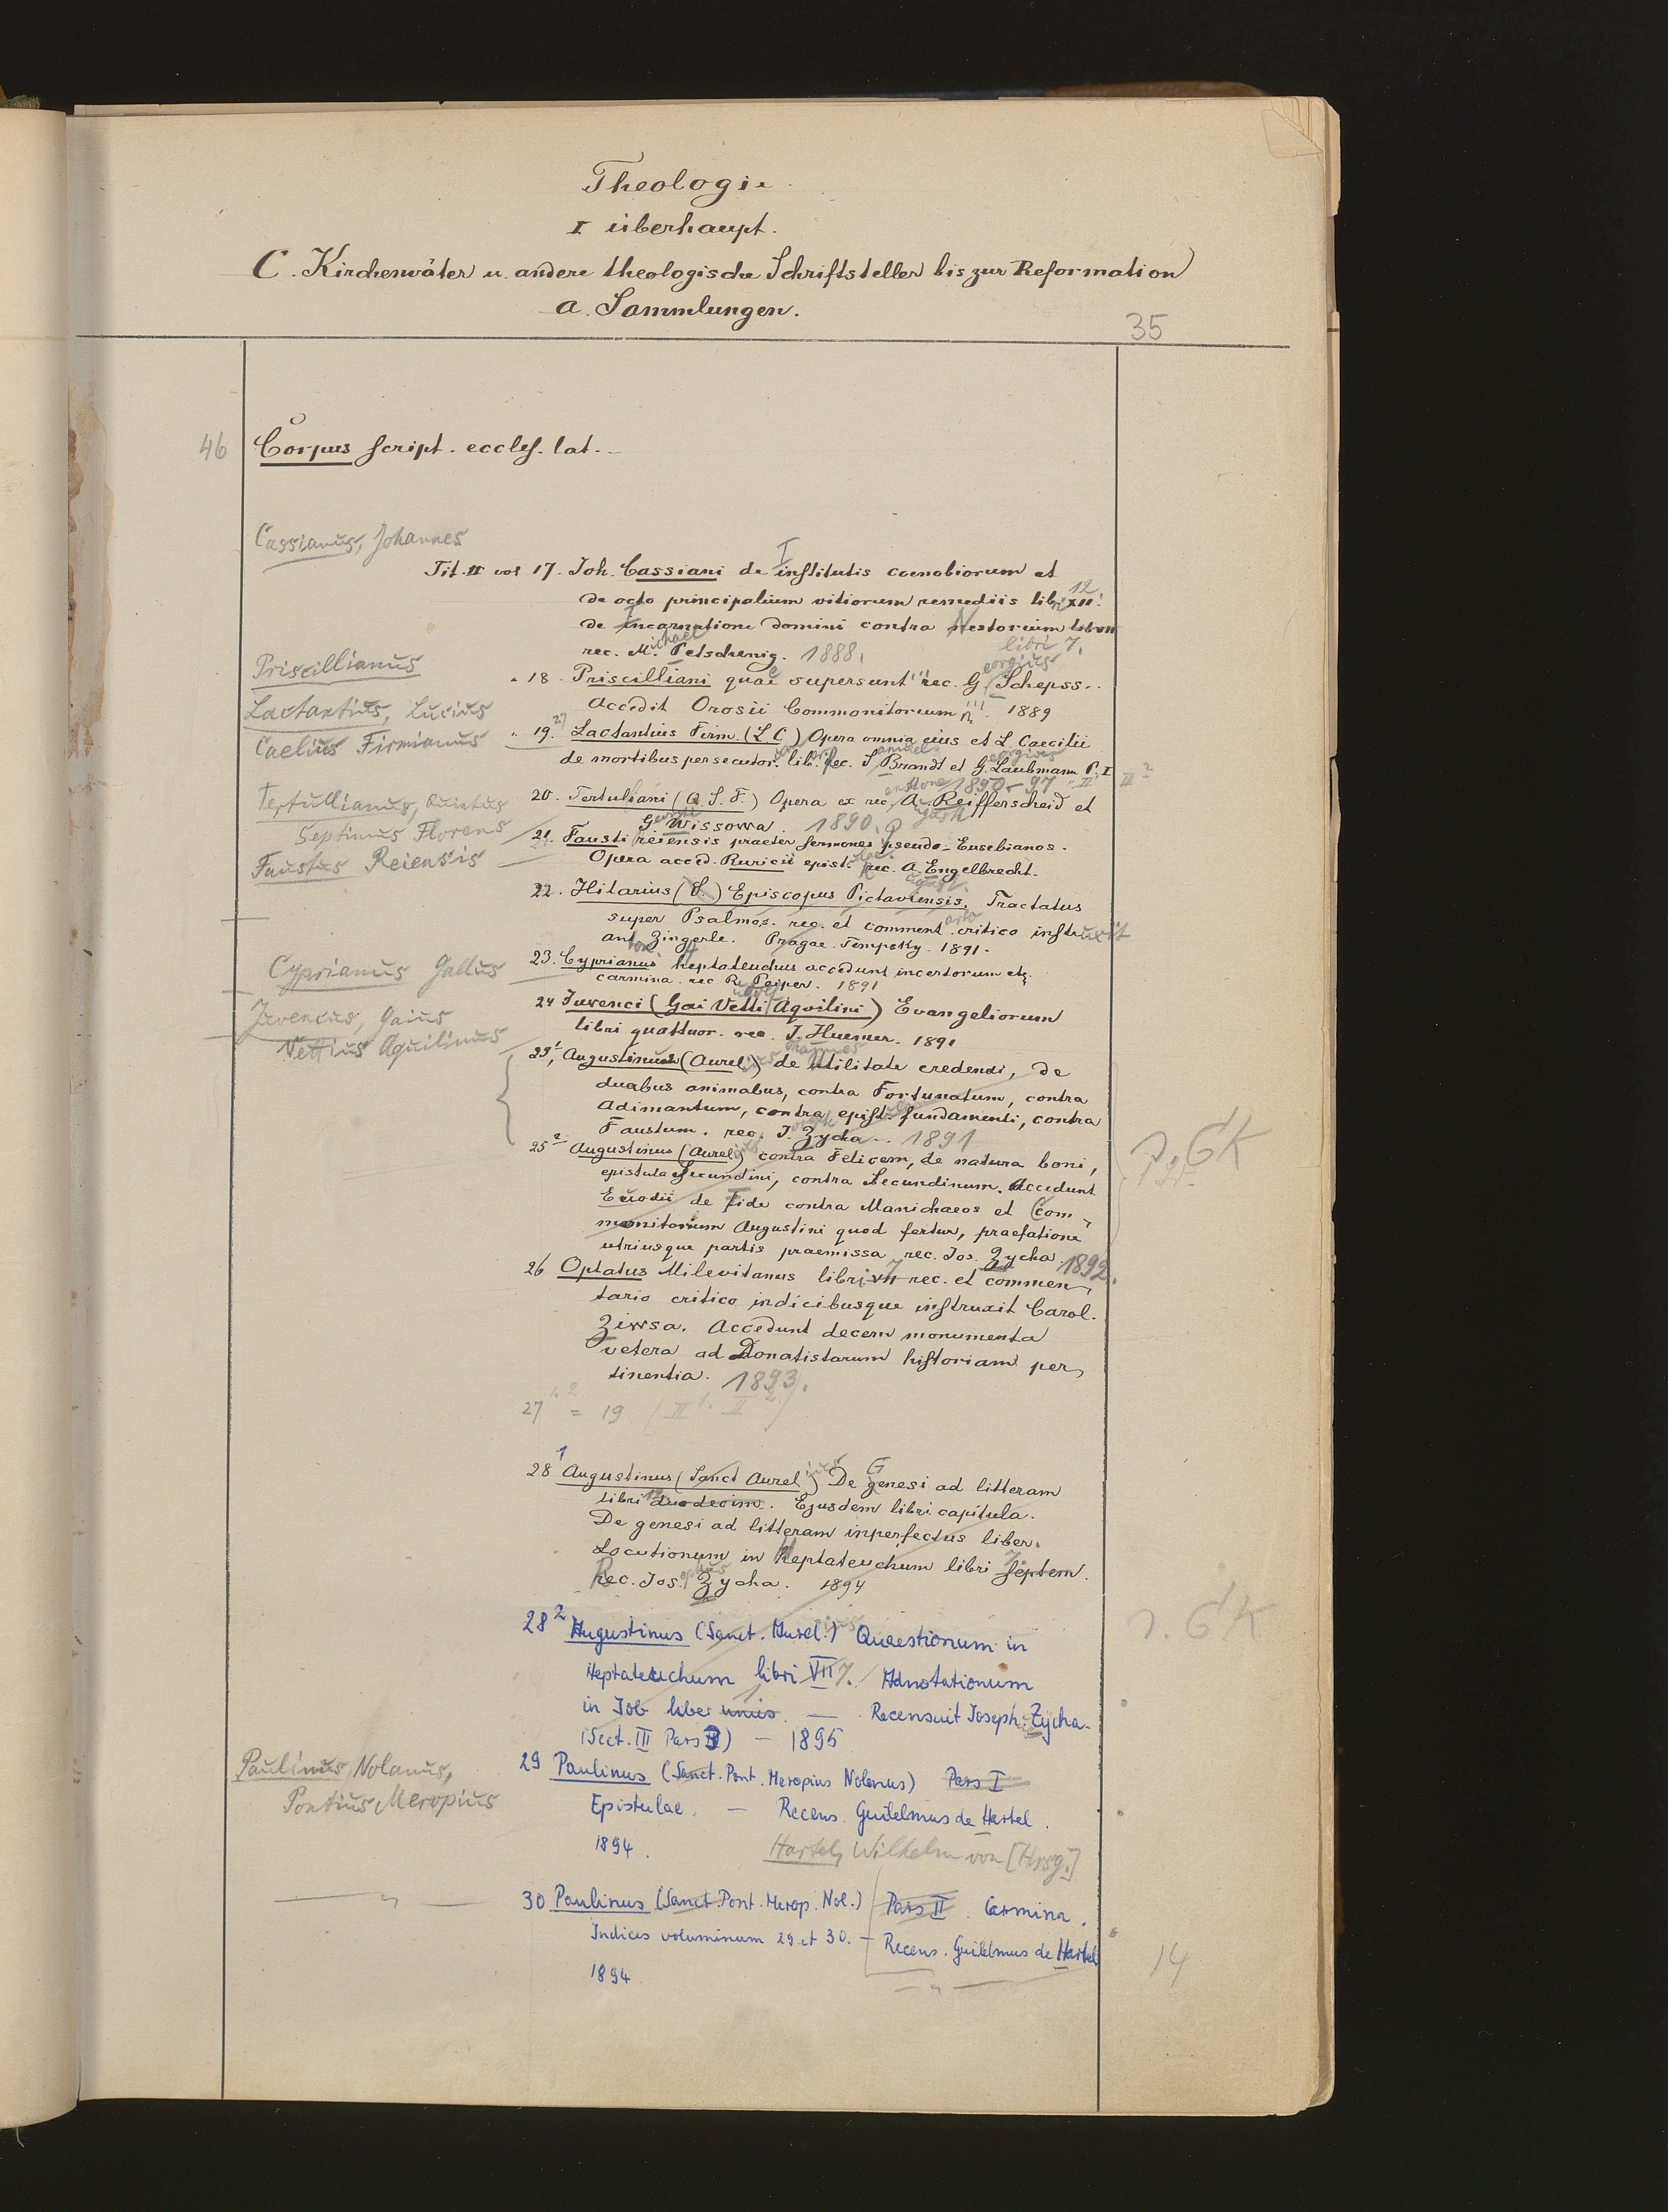 Theologie
I überhaupt.
C. Kirchenväter u. andere theologische Schriftsteller bis zur Reformation
a. Sammlungen.
35
46 Corpus script. eccles. lat.
Cassianus, Johannes
Tit. II vol 17. Joh. Cassiani de Institutis coenobiorum et
de octo principalium vitiorum remediis libri XII 12
de Incarnatione domini contra Nestorium lib VII
libri 7.
rec. Michael Petschenig. 1888.
Priscillianus
" 18. Priscilliani quae supersunt rec. Georgius Schepss.
Accedit Orosii Commonitorium 1889
Lactantius, Lucius
Caelius Firmianus
" 19. 27 Lactantius Firm. (L C) Opera omnia eius et L. Caecilii
de mortibus persecutor. lib. Rec. Samuel Brandt et Georgius Laubmann P. I
II III 2
1890-97
Tertullianus, Quintus
Septimus Florens
20. Tertuliani (Q. S. F.) Opera ex rec. Augusti Reifferscheid et
Georgii Wissowa. 1890.
Faustus Reiensis
21. Fausti reiensis praeter sermones pseudo-Eusebianos.
Opera acced. Ruricii epist. Rec. August. Engelbrecht.
22. Hilarius (S.) Episcopus Pictaviensis. Tractatus
super Psalmos. rec. et commentario critico instruxit
Anton. Zingerle. Pragae. Tempsky. 1891.
Cyprianus Gallus
23. Cyprianus Heptateuchus accedunt incertorum etc
carmina. rec. Rudolf Peiper. 1891
Juvencus, Gaius
Vettius Aquilinus
24 Juvenci (Gai Vetti Aquilini) Evangeliorum
libri quattuor. rec. Johannes Huemer. 1891
25 1, Augustinus (Aurelius) de Utilitate credendi, de
duabus animabus, contra Fortunatum, contra
Adimantum, contra epist. fundamenti, contra
Faustum. rec. J. Zycha. 1891
25 2 Augustinus (Aurelius) contra Felicem, de natura boni,
epistula Secundini, contra Secundinum. Accedunt
Euodii de Fide contra Manichaeos et Com-
monitorium Augustini quod fertur, praefatione
utriusque partis praemissa rec. Jos. Zycha. 1892.
26 Optatus Milevitanus libri VII 7 rec. et commen-
tario critico indicibusque instruxit Carol.
Ziwsa. Accedunt decem monumenta
vetera ad Donatistarum historiam per-
tinentia. 1893.
27 1. 2 = 19 (II 1. II 2)
28 1 Augustinus (Sanct Aurelius) De Genesi ad litteram
libri duodecim 12. Ejusdem libri capitula.
De genesi ad litteram inperfectus liber.
Locutionum in Heptateuchum libri septem 7.
Rec. Josephus Zycha. 1894
28 2 Augustinus (Sanct. Aurelius) Quaestionum in
Heptateuchum libri VII 7. Adnotationum
in Job liber unus 1. — Recensuit Joseph. Zycha.
(Sect. III Pars 3) — 1895
Paulinus, Nolanus,
Pontius Meropius
29 Paulinus (Sanct. Pont. Meropius Nolanus) Pars I
Epistulae. — Recens. Guilelmus de Hartel.
1894.
Hartel, Wilhelm von [Hrsg.]
— " — 30 Paulinus (Sanct. Pont. Merop. Nol.) Pars II. Carmina.
Indices voluminum 29 et 30. — Recens. Guilelmus de Hartel
1894
— " —
14